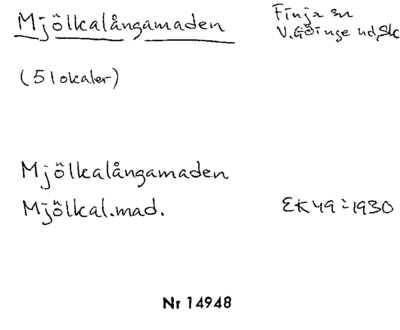 Mjölkalångamaden
Finja sn
V. Göinge hd, Sk
(5 lokaler)
Mjölkalångamaden
Mjölkal.mad.
EK 49 = 1930
Nr 14948